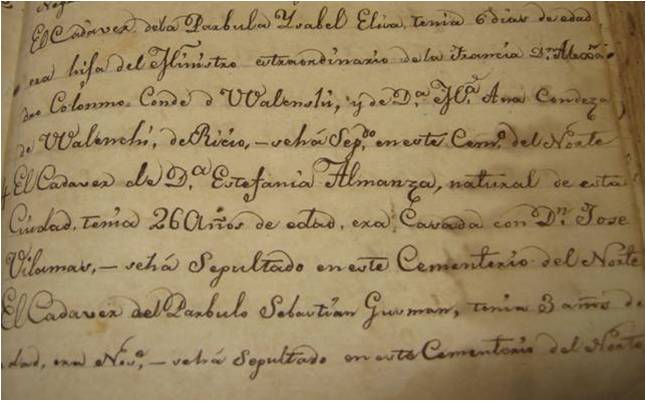 El Cadaver dela Parbula Ysabel Elisa, tenia 6 dias de edad,
era hifa del Ministro extraordinario de la Francia Dn. Alexan-
dro Colonno Conde d VValenski, y de D.a M.a Ana Condeza,
de VValenchi, de Ricio, – sehá Sepdo. en este Cemo. del Norte
El Cadaver de D.a Estefania Almanza, natural de esta
Ciudad, tenia 26 Años de edad, era Casada con Dn. Jose
Vilamas, – sehá Sepultado en este Cementerio del Norte
El Cadaver del Parbulo Sebastian Gusman, tenia 3 años de
dad, era – sehá Sepultado en este Cementerio del Norte